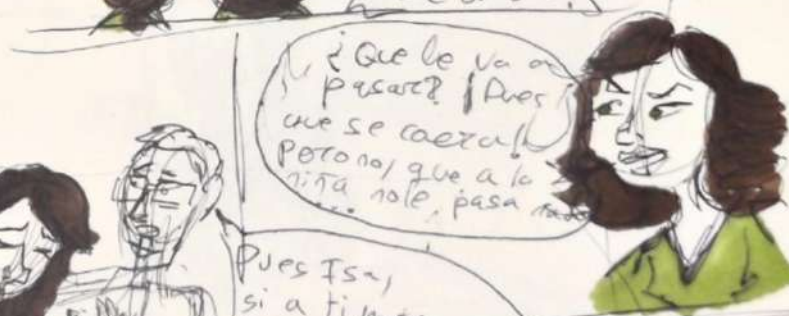 ¿Que le va a
pasar? ¡Pues
que se caera!
Pero no, que a la
niña no le pasa nada
...
Pues Isa,
si a ti